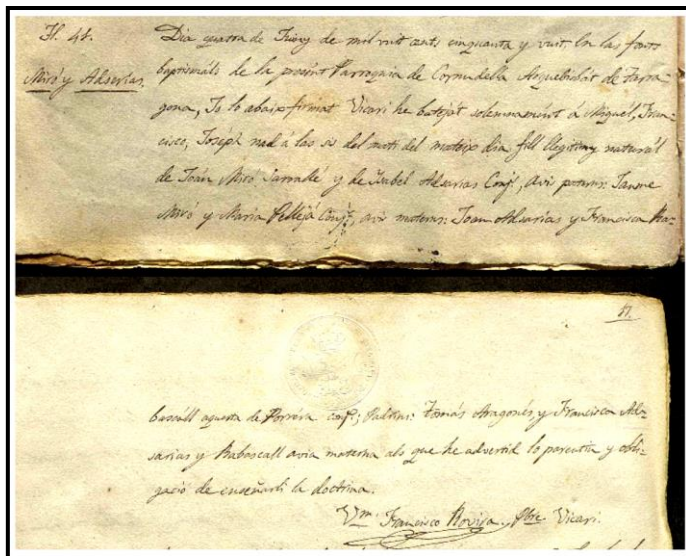 Fl. 44.
Miró y Adserias.
Dia quatra de Juny de mil vuit cents cinquanta y vuit. En las fonts
baptismáls de la present Parroquia de Cornudella Arquebisbát de Tarra-
gona, Jo lo abaix firmat Vicari he batejat solemnemént á Miquel, Fran-
cisco, Joseph nad á las sis del matí del mateix dia fill llegitim y naturál
de Joán Miró Jornalé y de Isabel Adserias Conj.s, Avis paterns: Jaume
Miró y Maria Pellejá Conj.s, avis materns: Joan Adserias y Francisca Ra-
51.
bascáll aquesta de Porréra conj.s; Padrins: Tomás Aragonés, y Francisca Ad-
sarias y Rabascall avia materna als que he advertid lo parentiu y obli-
gació de enseñarli la doctrina.
Francisco Rovira, Pbre. Vicari.